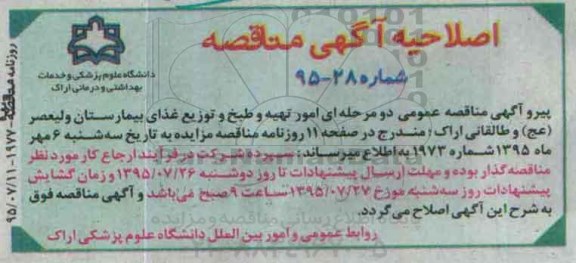 اصلاحیه آگهی مناقصه
شماره ۲۸-۹۵
دانشگاه علوم پزشکی و خدمات
بهداشتی و درمانی اراک
پیرو آگهی مناقصه عمومی دو مرحله ای امور تهیه و طبخ و توزیع غذای بیمارستان ولیعصر
(عج) و طالقانی اراک؛ مندرج در صفحه ۱۱ روزنامه مناقصه مزایده به تاریخ سه‌شنبه ۶ مهر
ماه ۱۳۹۵ شماره ۱۹۷۳ به اطلاع میرساند: سپرده شرکت در فرآیند ارجاع کار مورد نظر
مناقصه گذار بوده و مهلت ارسال پیشنهادات تا روز دوشنبه ۱۳۹۵/۰۷/۲۶ و زمان گشایش
پیشنهادات روز سه‌شنبه مورخ ۱۳۹۵/۰۷/۲۷ ساعت ۹ صبح می‌باشد و آگهی مناقصه فوق
به شرح این آگهی اصلاح می گردد.
روابط عمومی و امور بین الملل دانشگاه علوم پزشکی اراک
روزنامه مناقصه - ۱۹۷۷ - ۹۵/۰۷/۱۱